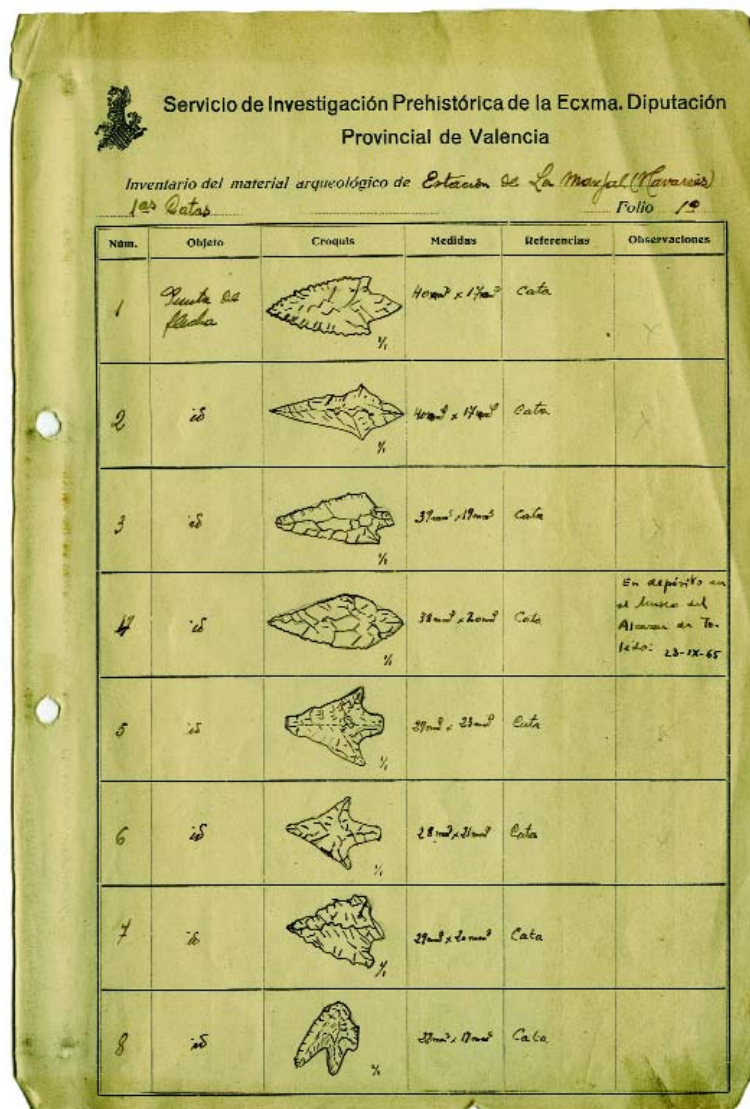 Servicio de Investigación Prehistórica de la Ecxma. Diputación
Provincial de Valencia
Inventario del material arqueológico de Estación de La Marjal (Navarrés)
1as Catas Folio 1º
Núm. Objeto Croquis Medidas Referencias Observaciones
1 Punta de flecha 1/1 40 x 17 Cata
2 id 1/1 40 x 17 Cata
3 id 1/1 x 19 Cata
4 id 1/1 38 x 20 Cata
En depósito en
el Museo del
Alcazar de To-
ledo: 23-IX-65
5 id 1/1 x 23 Cata
6 id 1/1 28 x 21 Cata
7 id 1/1 29 x 20 Cata
8 id 1/1 Cata